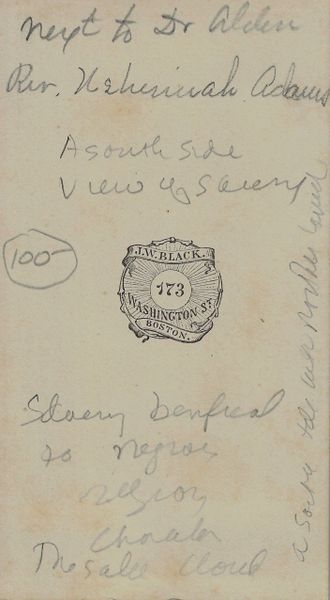 next to Dr Alden
Rev. Nehemiah Adams
A South Side
View of Slavery
100-
J.W. BLACK.
173
WASHINGTON ST.
BOSTON.
Slavery
to negroes
religious
character
The Sable Cloud
a Southern tale with Northern